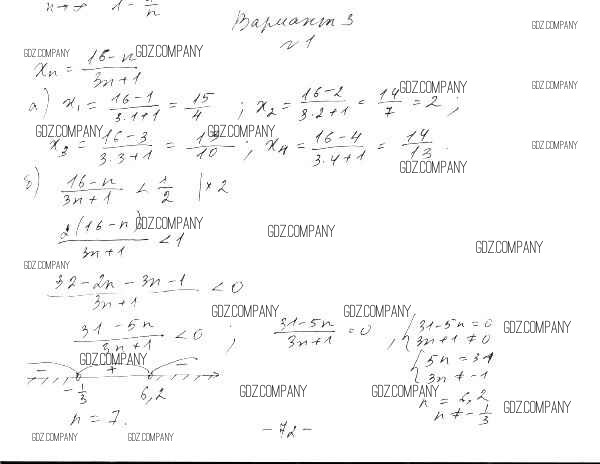 n→∞ 1 - n/n
Вариант 3
№1
GDZ.COMPANY GDZ.COMPANY GDZ.COMPANY
xn = (16-n)/(3n+1)
GDZ.COMPANY GDZ.COMPANY
а) x₁ = (16-1)/(3·1+1) = 15/4 ; x₂ = (16-2)/(3·2+1) = 14/7 = 2 ;
GDZ.COMPANY GDZ.COMPANY
x₃ = (16-3)/(3·3+1) = 13/10 ; x₄ = (16-4)/(3·4+1) = 14/13 .
GDZ.COMPANY GDZ.COMPANY
б) (16-n)/(3n+1) < 1/2 |×2
2(16-n)/(3n+1) < 1
GDZ.COMPANY GDZ.COMPANY GDZ.COMPANY
GDZ.COMPANY
(32-2n-3n-1)/(3n+1) < 0
GDZ.COMPANY GDZ.COMPANY
(31-5n)/(3n+1) < 0 ; (31-5n)/(3n+1) = 0 , { 31-5n = 0
3n+1 ≠ 0
GDZ.COMPANY GDZ.COMPANY
{ 5n = 31
3n ≠ -1
- + -
-1/3 6,2
n = 6,2
n ≠ -1/3
GDZ.COMPANY GDZ.COMPANY GDZ.COMPANY
n = 7.
-72-
GDZ.COMPANY GDZ.COMPANY